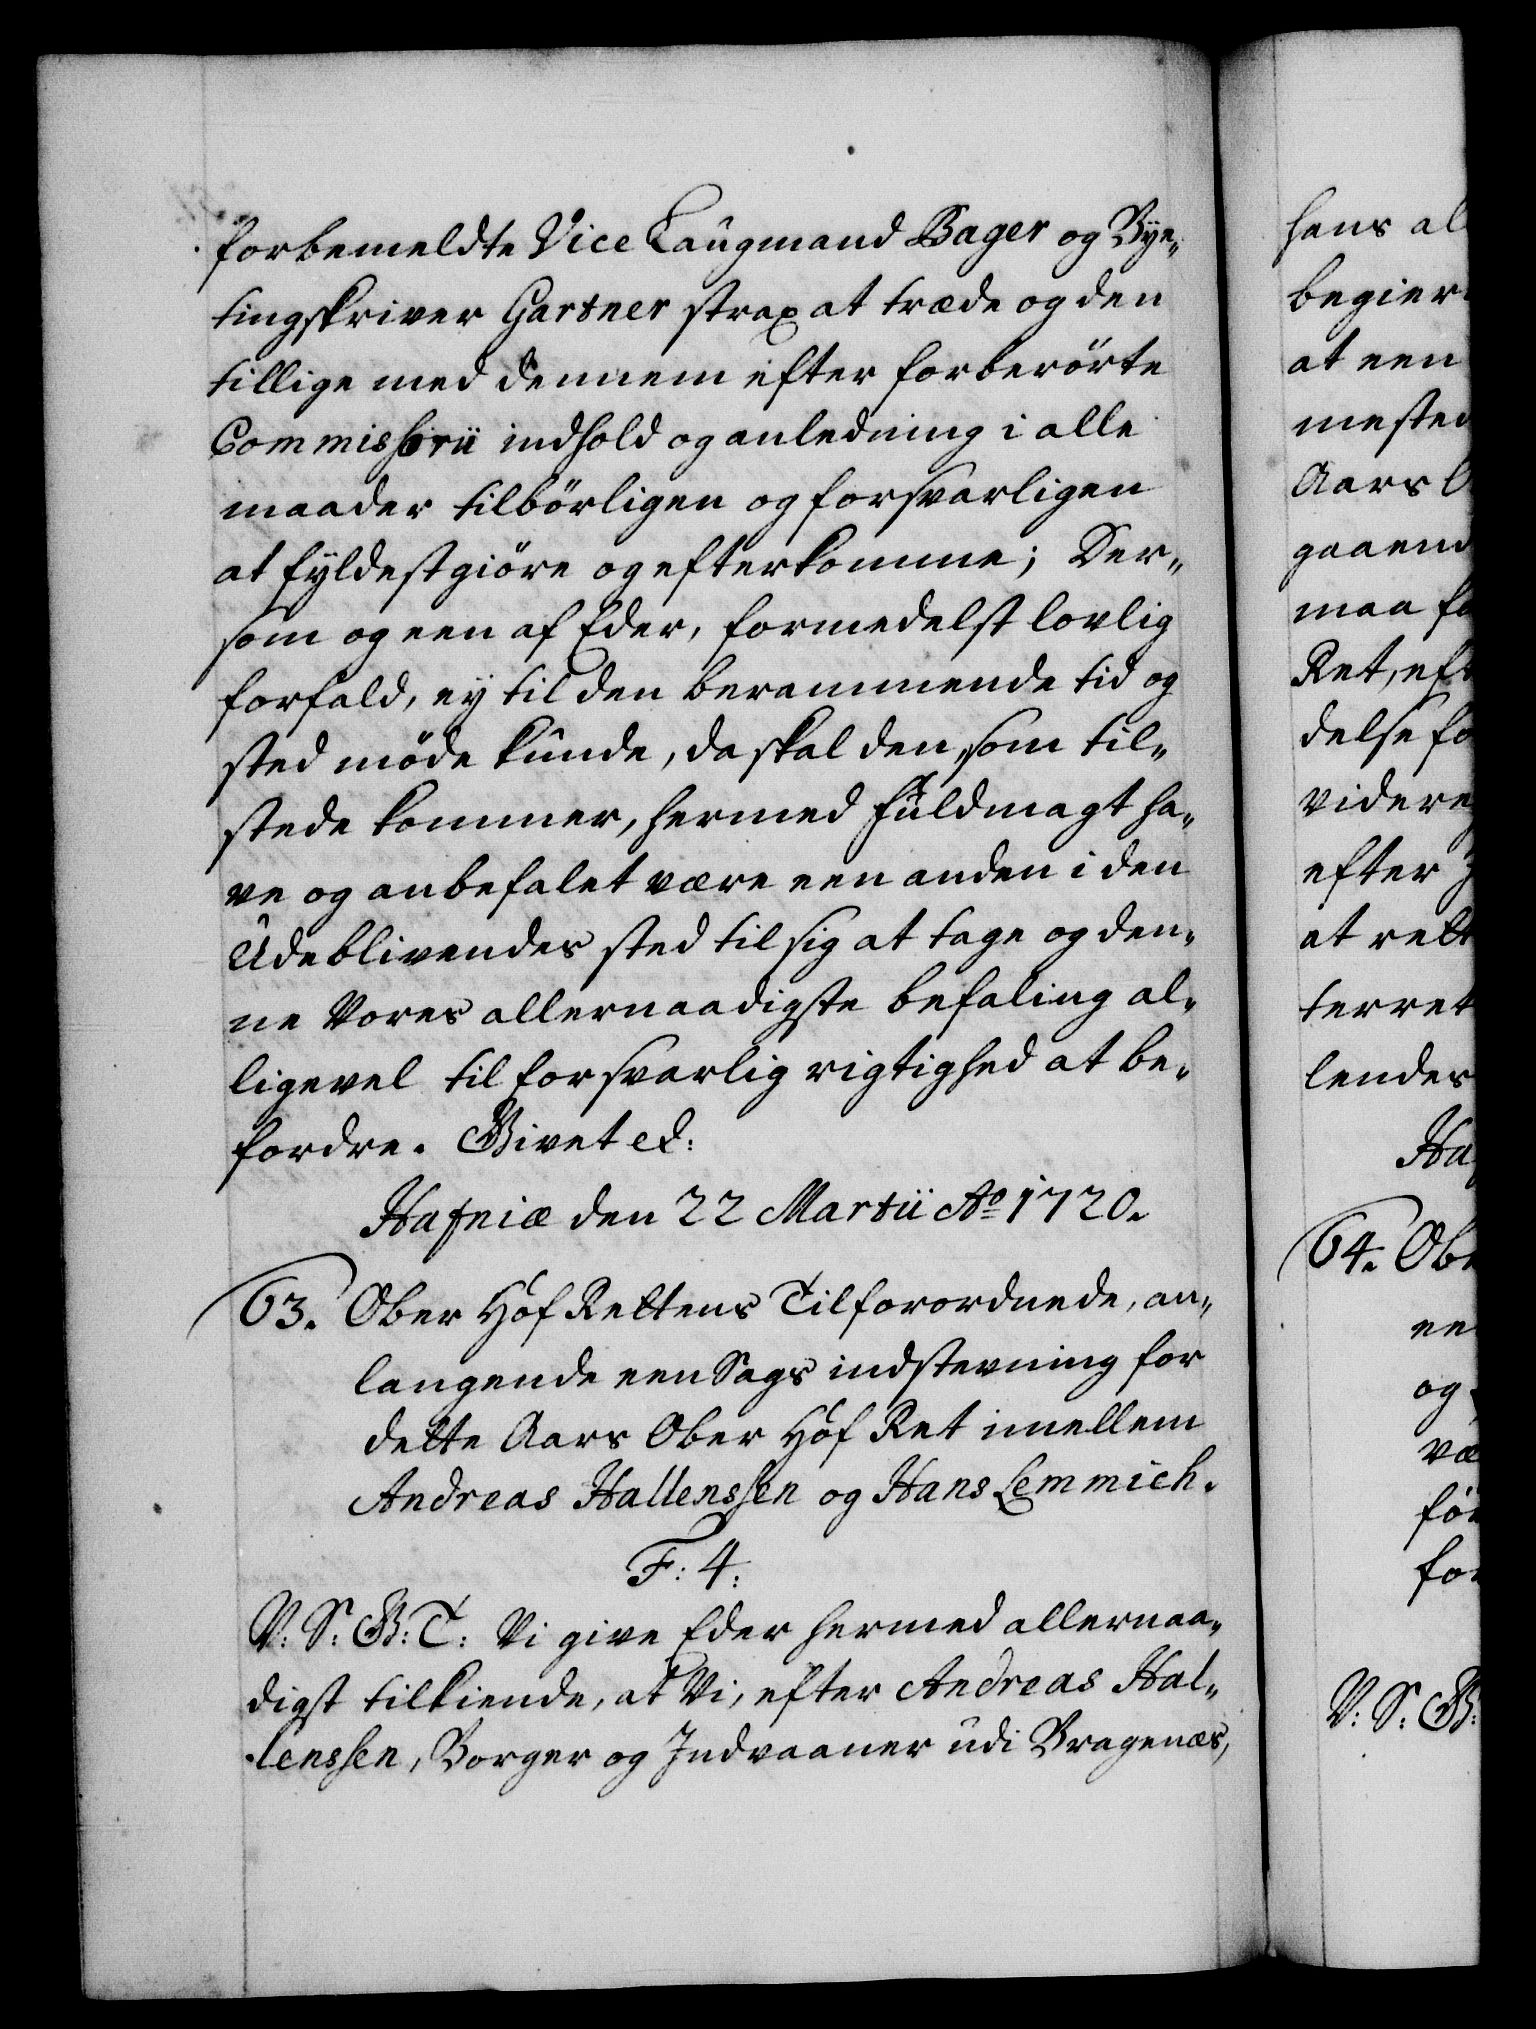 forbemeldte Vice Laugmand Bager og Bye„
tingskriver Gartner strax at træde og den
tillige med dennem efter forberörte
Commissorii indhold og anledning i alle
maader tilbörligen og forsvarligen
at fyldestgiöre og efterkomme; Der„
som og een af Eder, formedelst lovlig
forfald, ey til den berammende tid og
sted möde kunde, da skal den, som til„
stede kommer, hermed fuldmagt ha„
ve og anbefalet være een anden i den
Udeblivendes sted til sig at tage og den„
ne Vores allernaadigste befaling al„
ligevel til forsvarlig rigtighed at be„
fordre. Givet etc:
Hafniæ den 22 Martii Ao 1720.
63. Ober Hof Rettens Tilforordnede, an„
langende een Sags indstevning for
dette Aars Ober Hof Ret imellem
Andreas Hallenssen og Hans Lemmich.
F: 4:
V: S: G: T: Vi give Eder hermed allernaa„
digst tilkiende, at Vi, efter Andreas Hal„
lenssen, Borger og Indvaaner udi Bragenæs,
hans al
begier
at een
mested
Aars O
gaaend
maa fo
Ret, eft
delse fo
videre
efter
at rett
terret
lendes
Haf
64. Obe
ee
og
væ
för
for
V: S: G: